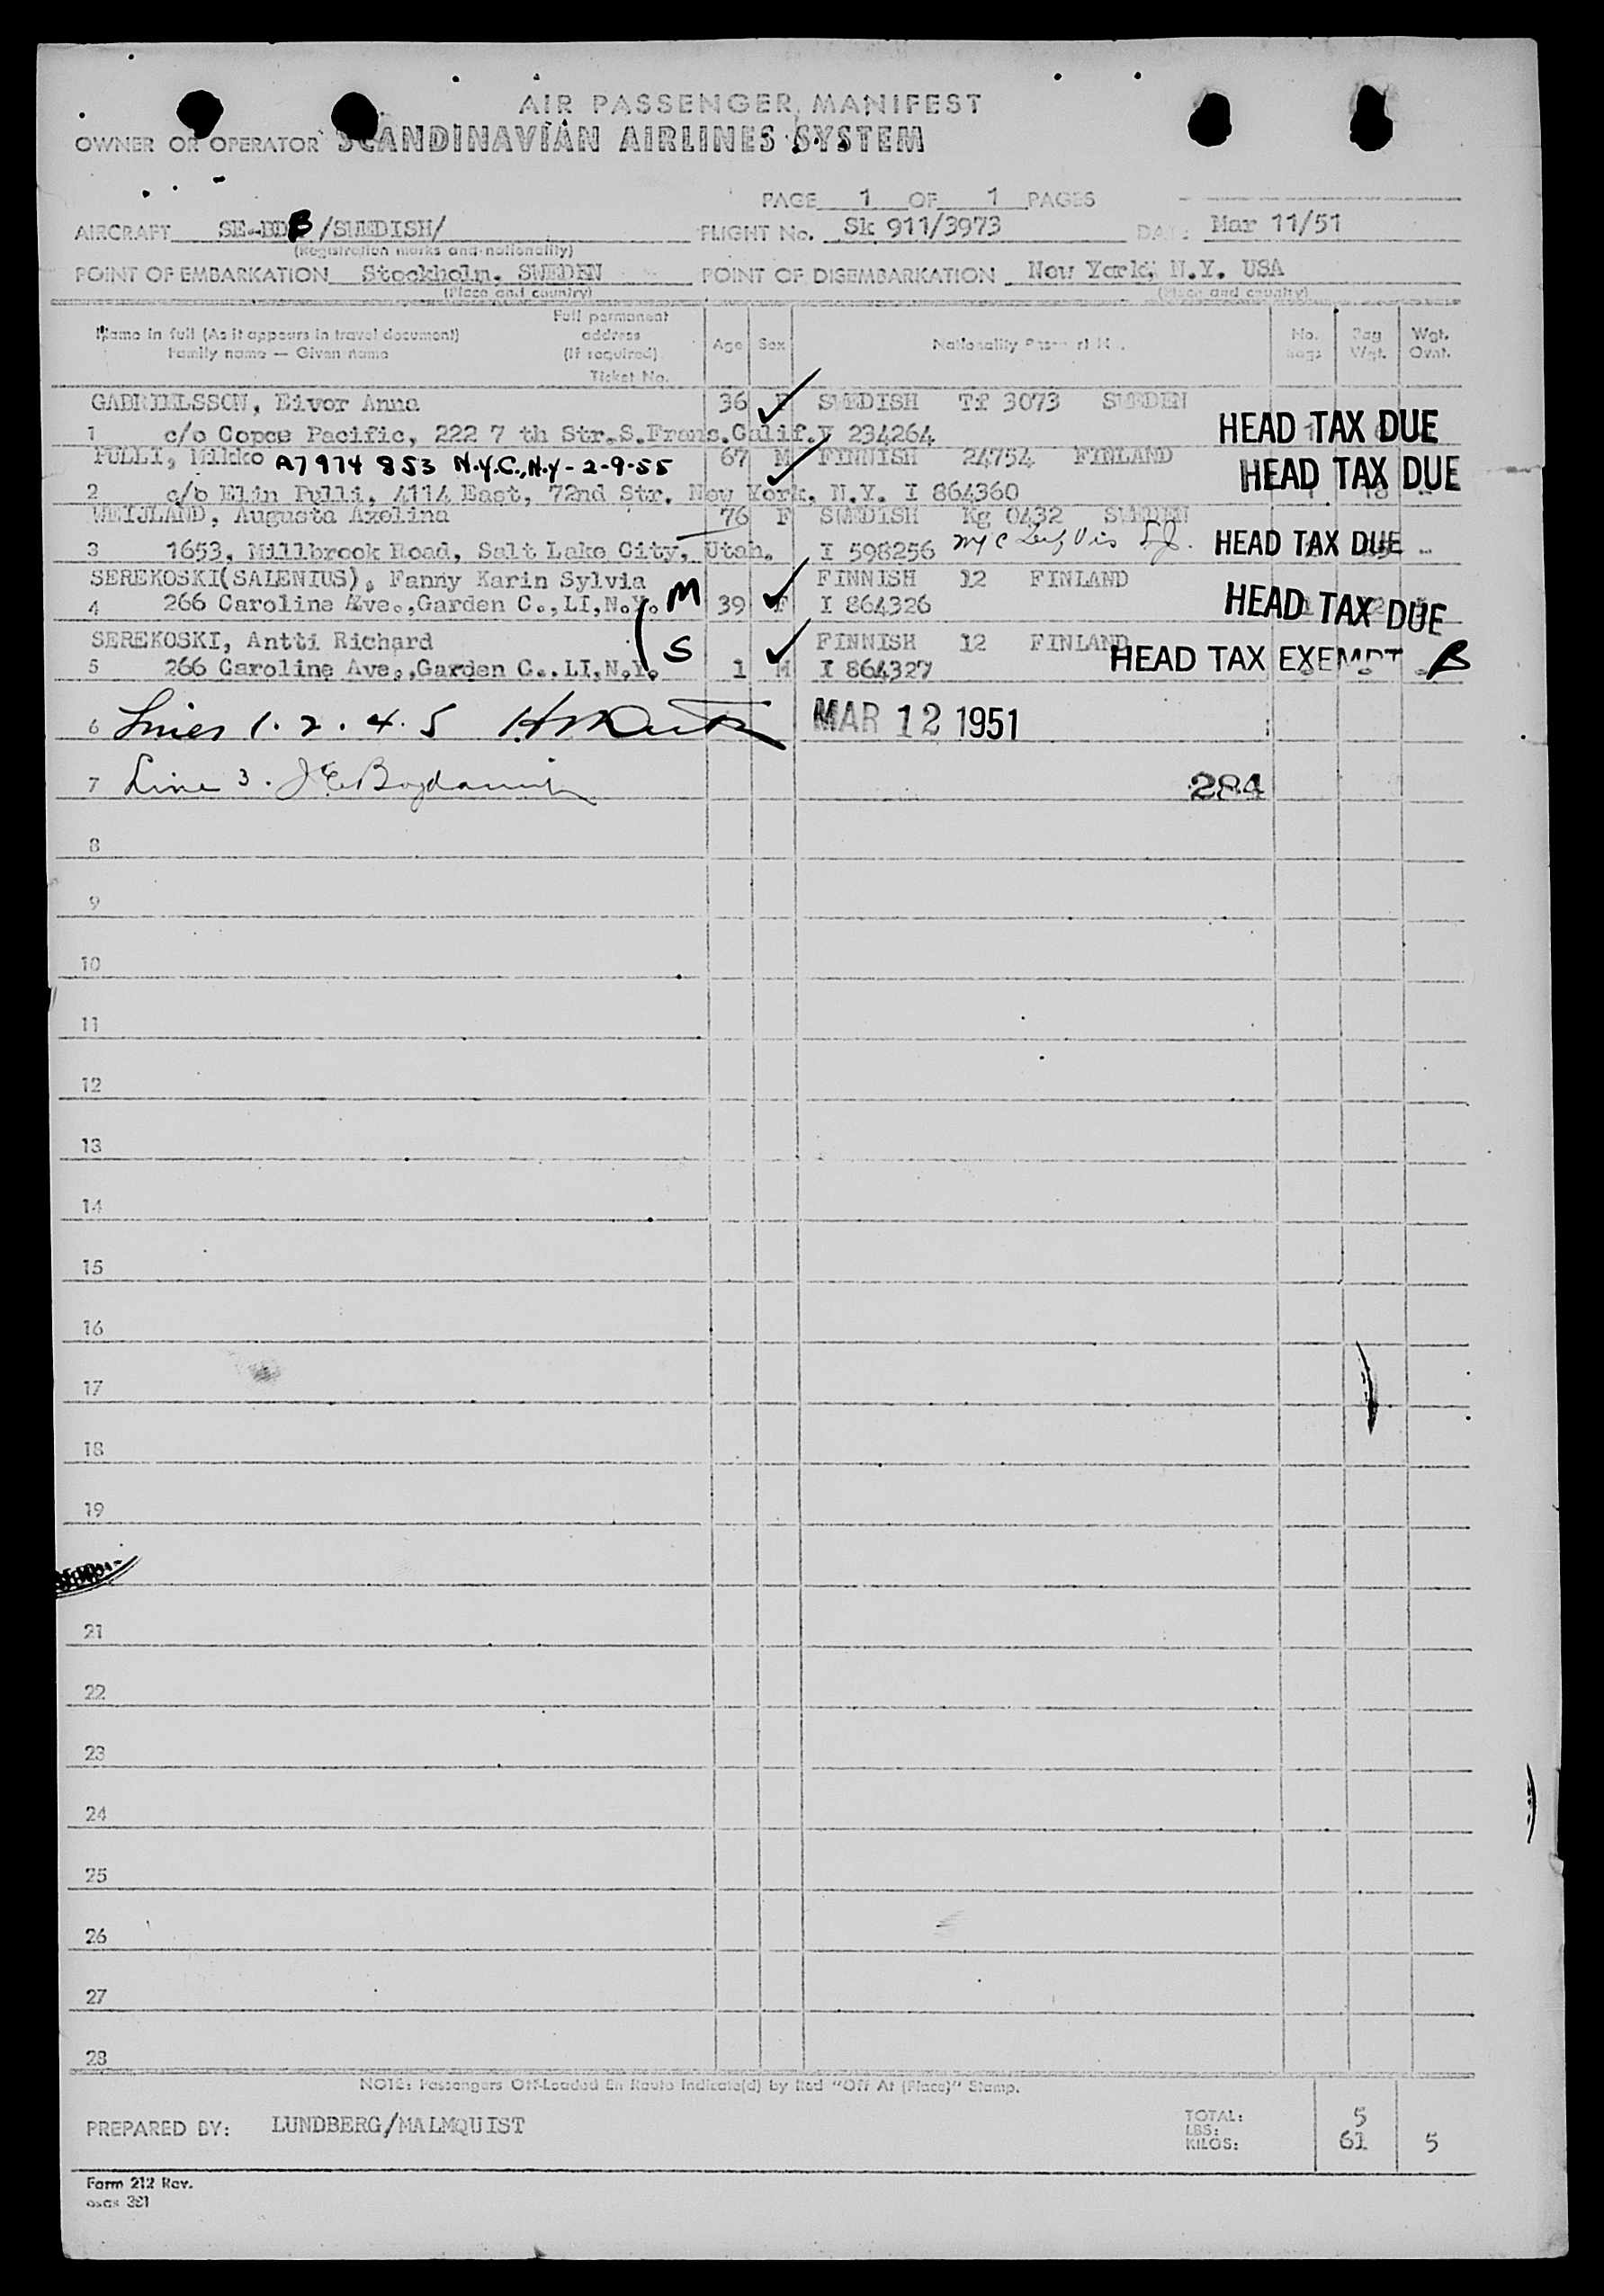 AIR PASSENGER MANIFEST
OWNER OR OPERATOR SCANDINAVIAN AIRLINES SYSTEM
PAGE 1 OF 1 PAGES
AIRCRAFT SE-BDB /SWEDISH/ FLIGHT No. Sk 911/3973 DATE Mar 11/51
(Registration marks and nationality)
POINT OF EMBARKATION Stockholm, SWEDEN POINT OF DISEMBARKATION New York, N.Y. USA
(Place and country) (Place and country)
Name in full (As it appears in travel document) Full permanent address (If required) Age Sex Nationality Passport No. No. Bags Bag Wgt. Wgt. Ovnt.
Family name — Given name Ticket No.
GABRIELSSON, Eivor Anna 36 F SWEDISH Tf 3073 SWEDEN
1 c/o Copce Pacific, 222 7 th Str.S.Frans.Calif.V 234264 HEAD TAX DUE
PULLI, Mikko A7 974 853 N.Y.C., N.Y - 2-9-55 67 M FINNISH 24754 FINLAND HEAD TAX DUE
2 c/o Elin Pulli, 4114 East, 72nd Str. New York, N.Y. I 864360
WEIJLAND, Augusta Axelina 76 F SWEDISH Kg 0432 SWEDEN
3 1653, Millbrook Road, Salt Lake City, Utah. I 598256 HEAD TAX DUE
SEREKOSKI(SALENIUS), Fanny Karin Sylvia FINNISH 12 FINLAND
4 266 Caroline Ave.,Garden C.,LI,N.Y. M 39 F I 864326 HEAD TAX DUE
SEREKOSKI, Antti Richard S FINNISH 12 FINLAND
5 266 Caroline Ave.,Garden C..LI,N.Y. 1 M I 864327 HEAD TAX EXEMPT B
6 Lines 1. 2. 4. 5 MAR 12 1951
7 Line 3. 284
8
9
10
11
12
13
14
15
16
17
18
19
21
22
23
24
25
26
27
28
NOTE: Passengers Off-Loaded En Route Indicate(d) by Red "Off At (Place)" Stamp.
PREPARED BY: LUNDBERG/MALMQUIST
TOTAL: 5
LBS:
KILOS: 61 5
Form 212 Rev.